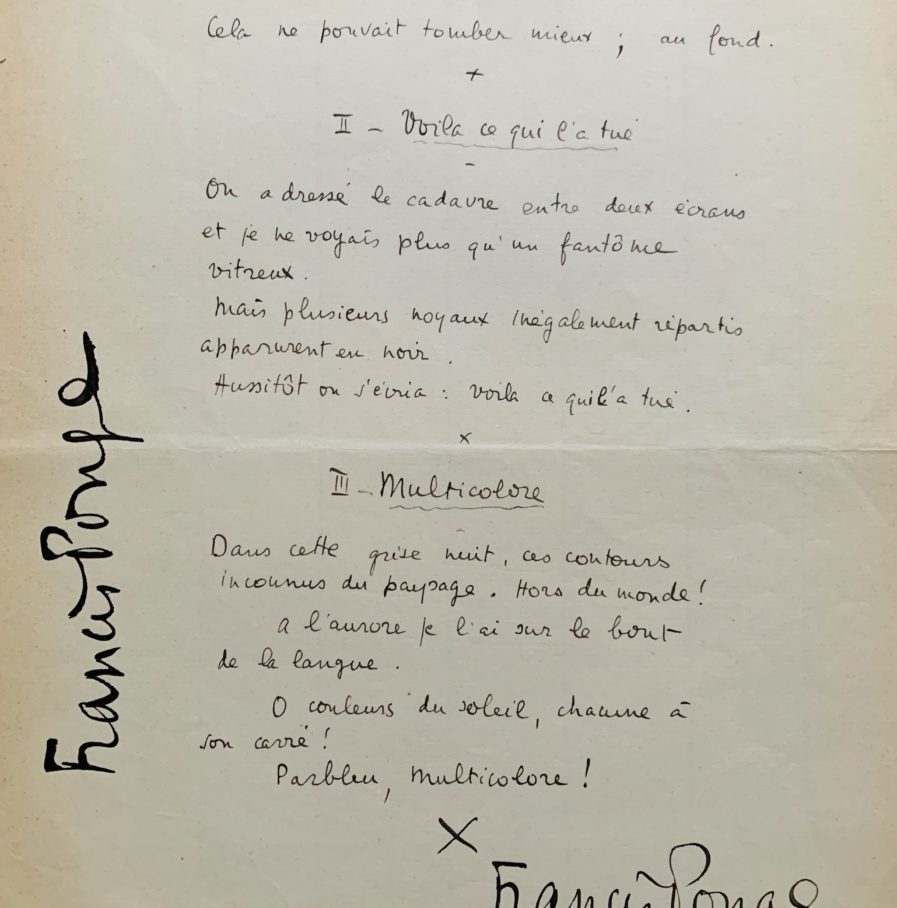 Cela ne pouvait tomber mieux ; au fond.
+
II - Voila ce qui l'a tué
-
On a dressé le cadavre entre deux écrans
et je ne voyais plus qu'un fantôme
vitreux.
Mais plusieurs noyaux inégalement répartis
apparurent en noir.
Aussitôt on s'écria : Voila ce qui l'a tué.
x
III - Multicolore
-
Dans cette grise nuit, ces contours
inconnus du paysage. Hors du monde!
A l'aurore je l'ai sur le bout
de la langue.
O couleurs du soleil, chacune à
son carré!
Parbleu, multicolore!
X
Francis Ponge
Francis Ponge